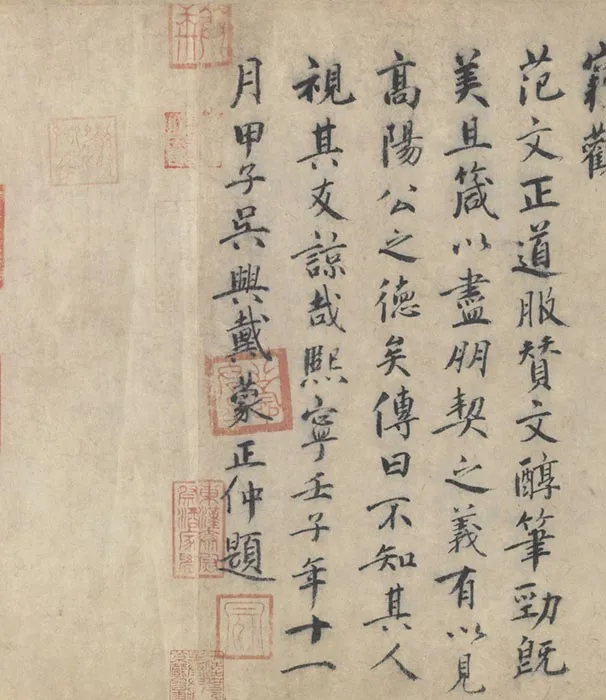 竊觀
范文正道服赞文醇筆勁既
美且箴以盡朋契之義有以見
高陽公之德矣傳曰不知其人
視其友諒哉熙寧壬子年十一
月甲子吳興戴蒙正仲題